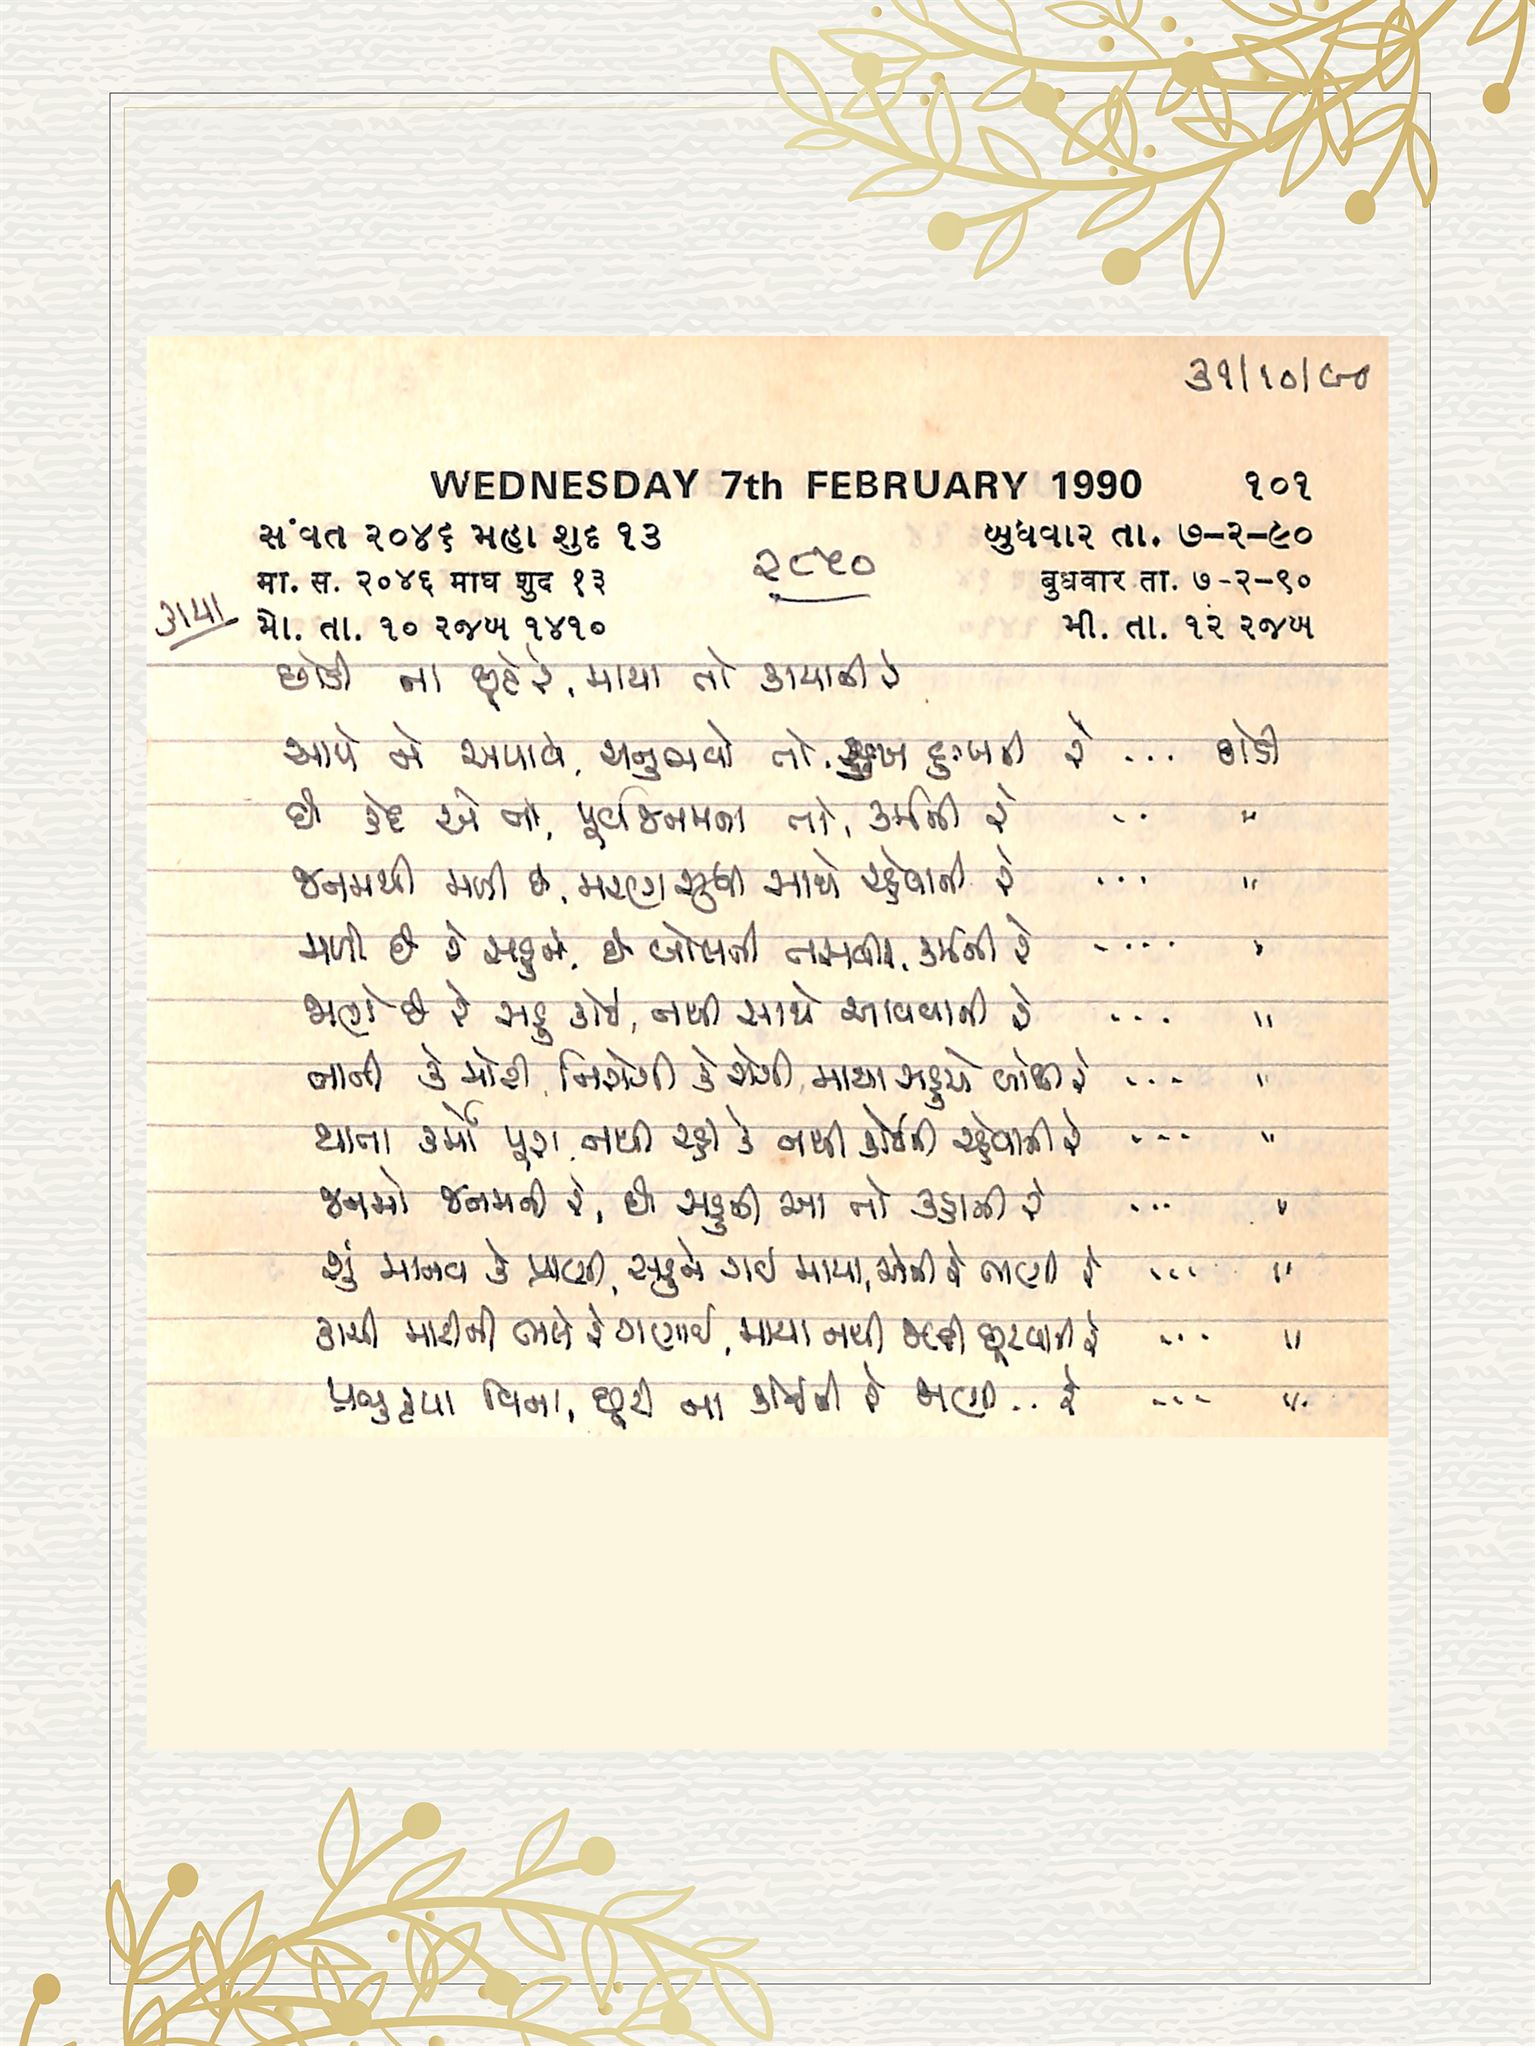 ૩૧/૧૦/૯૦
WEDNESDAY 7th FEBRUARY 1990 ૧૦૧
સંવત ૨૦૪૬ મહા શુદ ૧૩ બુધવાર તા. ૭-૨-૯૦
मा. स. २०४६ माघ शुद १३ बुधवार ता. ७-२-९०
મો. તા. ૧૦ રજબ ૧૪૧૦ મી. તા. ૧૨ રજબ
૨૮૫૦
કાયા
છોડી ના છૂટે રે, માયા તો કાયાની રે
આપે ને અપાવે, અનુભવો તો, સુખ દુઃખની રે ... છોડી
છે કેદ એ તો, પૂર્વજનમના તો, કર્મની રે ... "
જનમથી મળી છે, મરણ સુધી સાથે રહેવાની રે ... "
મળી છે રે સહુને, છે બોલતી તસવીર, કર્મની રે .... "
જાણે છે રે સહુ કોઈ, નથી સાથે આવવાની રે ... "
નાની કે મોટી, નિરોગી કે રોગી, માયા સહુએ બાંધી રે ... "
થાતા કર્મો પૂરા, નથી રહી કે નથી કોઈની રહેવાની રે ... "
જનમો જનમની રે, છે સહુની આ તો કહાની રે ... "
શું માનવ કે પ્રાણી, સહુને ગઈ માયા, એની રે બાંધી રે ... "
કાચી માટીની ભલે રે ગણાઈ, માયા નથી જલદી છૂટવાની રે ... "
પ્રભુકૃપા વિના, છૂટી ના કોઈની રે જાણી.. રે ... "